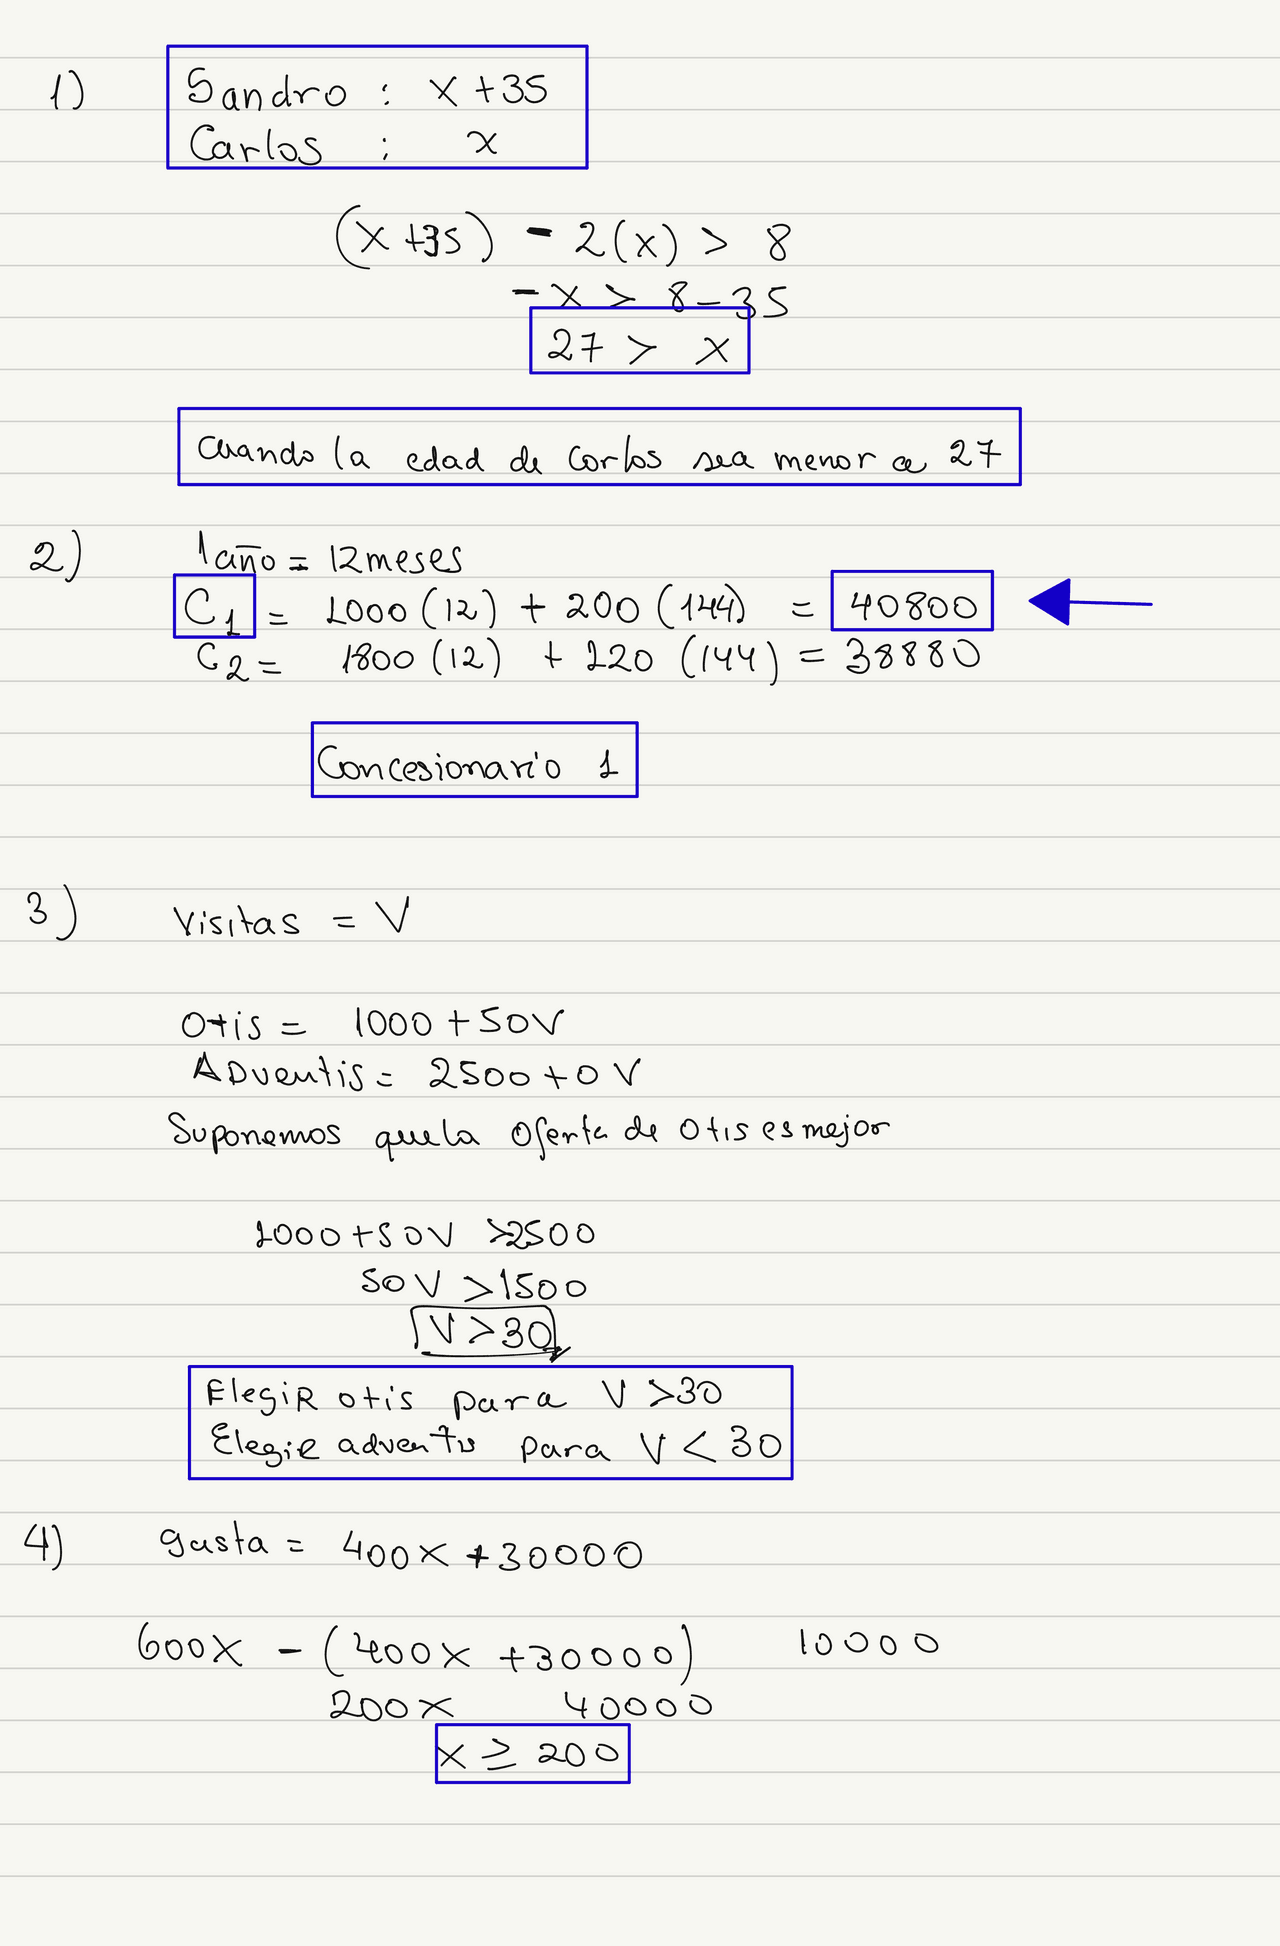 1) Sandro : x + 35
Carlos : x
(x + 35) - 2(x) > 8
- x > 8 - 35
27 > x
Cuando la edad de Carlos sea menor a 27
2) 1 año = 12 meses
C1 = 1000 (12) + 200 (144) = 40800
C2 = 1800 (12) + 120 (144) = 38880
Concesionario 1
3) Visitas = V
Otis = 1000 + 50V
ADventis = 2500 + 0 V
Suponemos que la oferta de Otis es mejor
1000 + 50V > 2500
50V > 1500
V > 30
ElegiR otis para V > 30
Elegir adventis para V < 30
4) gasta = 400x + 30000
600x - (400x + 30000) 10000
200x 40000
x ≥ 200